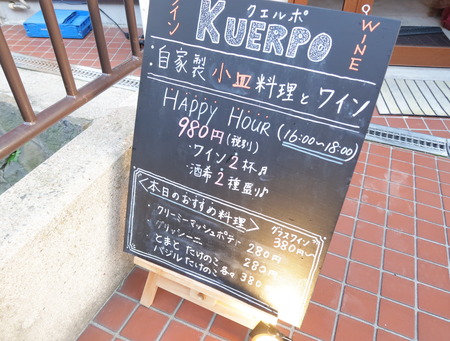 クエルポ
KUERPO
ワイン
WINE
・自家製 小皿料理とワイン
HAPPY HOUR (16:00〜18:00)
980円(税別)
・ワイン2杯♬
・酒肴2種盛り♪
<本日のおすすめ料理>
グラスワイン
380円〜
・クリーミーマッシュポテト
グリッシーニ 280円
とまと たけのこ 280円
バジルたけのこ 各々380